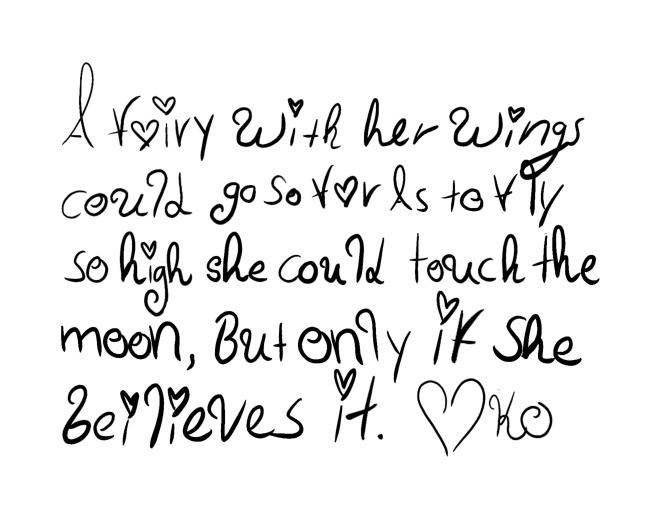 A fairy with her wings
could go so far As to fly
so high she could touch the
moon, But only if She
believes it. ♡KO